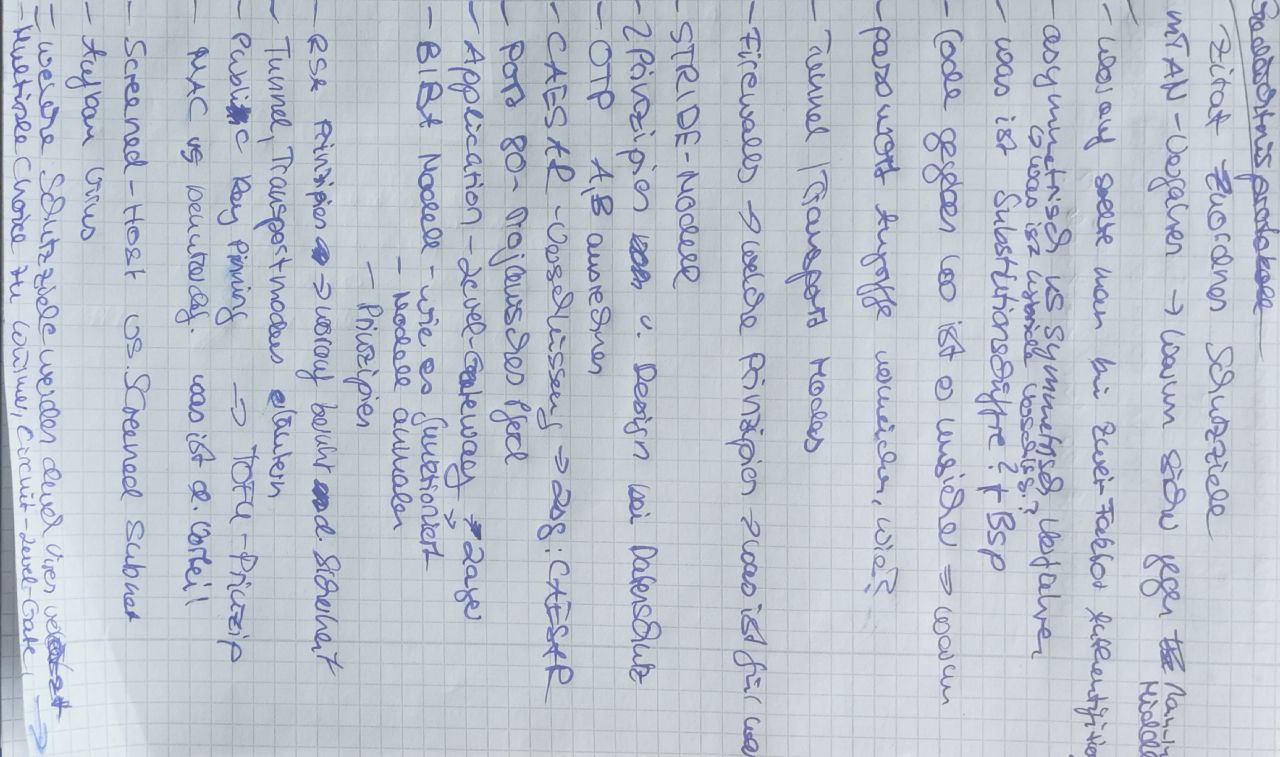 Gedächtnisprotokoll
Zitat zuordnen Schutzziele
mTAN-Verfahren → warum sicher gegen Man-in
Middle
- worauf sollte man bei Zwei-Faktor Authentifizie
- asymmetrisch vs symmetrisch Verfahren
↳ was ist hybride Verschlüss.?
- was ist Substitutionschiffre? + Bsp
- Code gegeben wo ist er unsicher → warum
- passwort Angriffe vermeiden, wie?
- Tunnel / Transport Modes
- Firewalls → welche Prinzipien → was ist für
- STRIDE-Modell
- 2 Prinzipien v. Design bei Datenschutz
- OTP A,B ausrechnen
- CAESAR-Verschlüsselung → : CAESAR
- Port 80 - Trojanisches Pferd
- Application-Level-Gateway →
- BIBA Modell - wie es funktioniert
- Modell anmalen
- Prinzipien
- RSA Prinzipien → worauf beruht d. Sicherheit
- Tunnel, Transportmodes erläutern
- Public Key Pinning → TOFU-Prinzip
- MAC vs was ist d. Vorteil
- Screened-Host vs. Screened Subnet
- Aufbau Virus
- welche Schutzziele werden durch Viren verletzt
- Multiple Choice zu Würmer, Circuit-Level-Gate, →